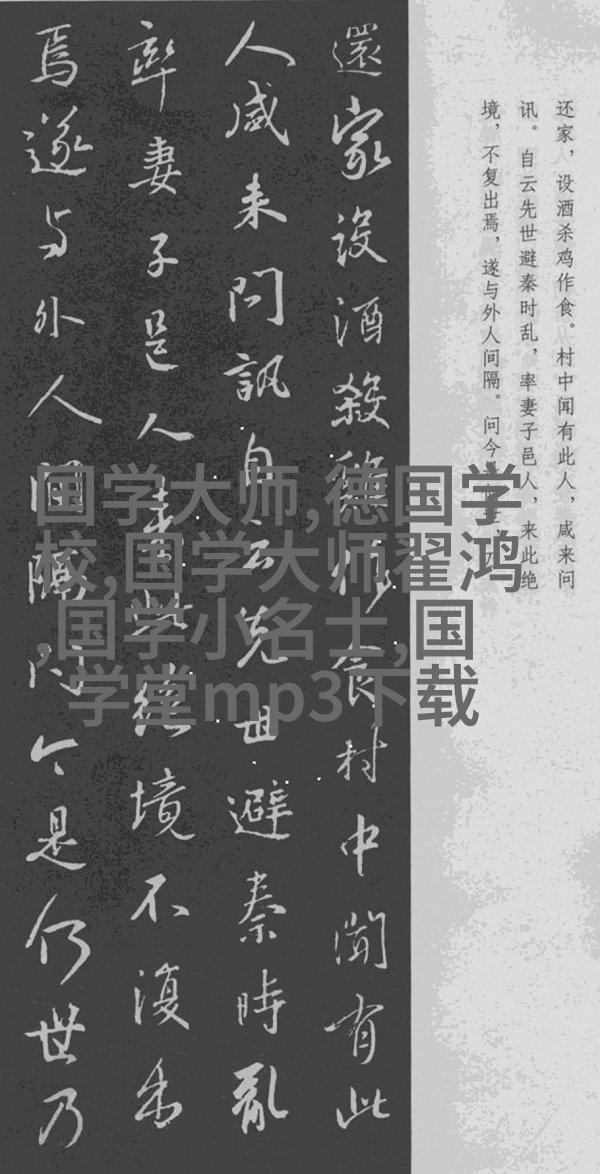 还家，设酒杀鸡作食。村中闻有此人，咸来问
讯。自云先世避秦时乱，率妻子邑人，来此绝
境，不复出焉，遂与外人间隔。问今
還家設酒殺雞作食村中聞有此
人咸来問訊自云先世避秦時亂
率妻子邑人来此绝境不復出
焉遂与外人間隔问今是何世乃
国学大师,德国学
校,国学大师翟鸿
,国学小名士,国
学堂mp3下载